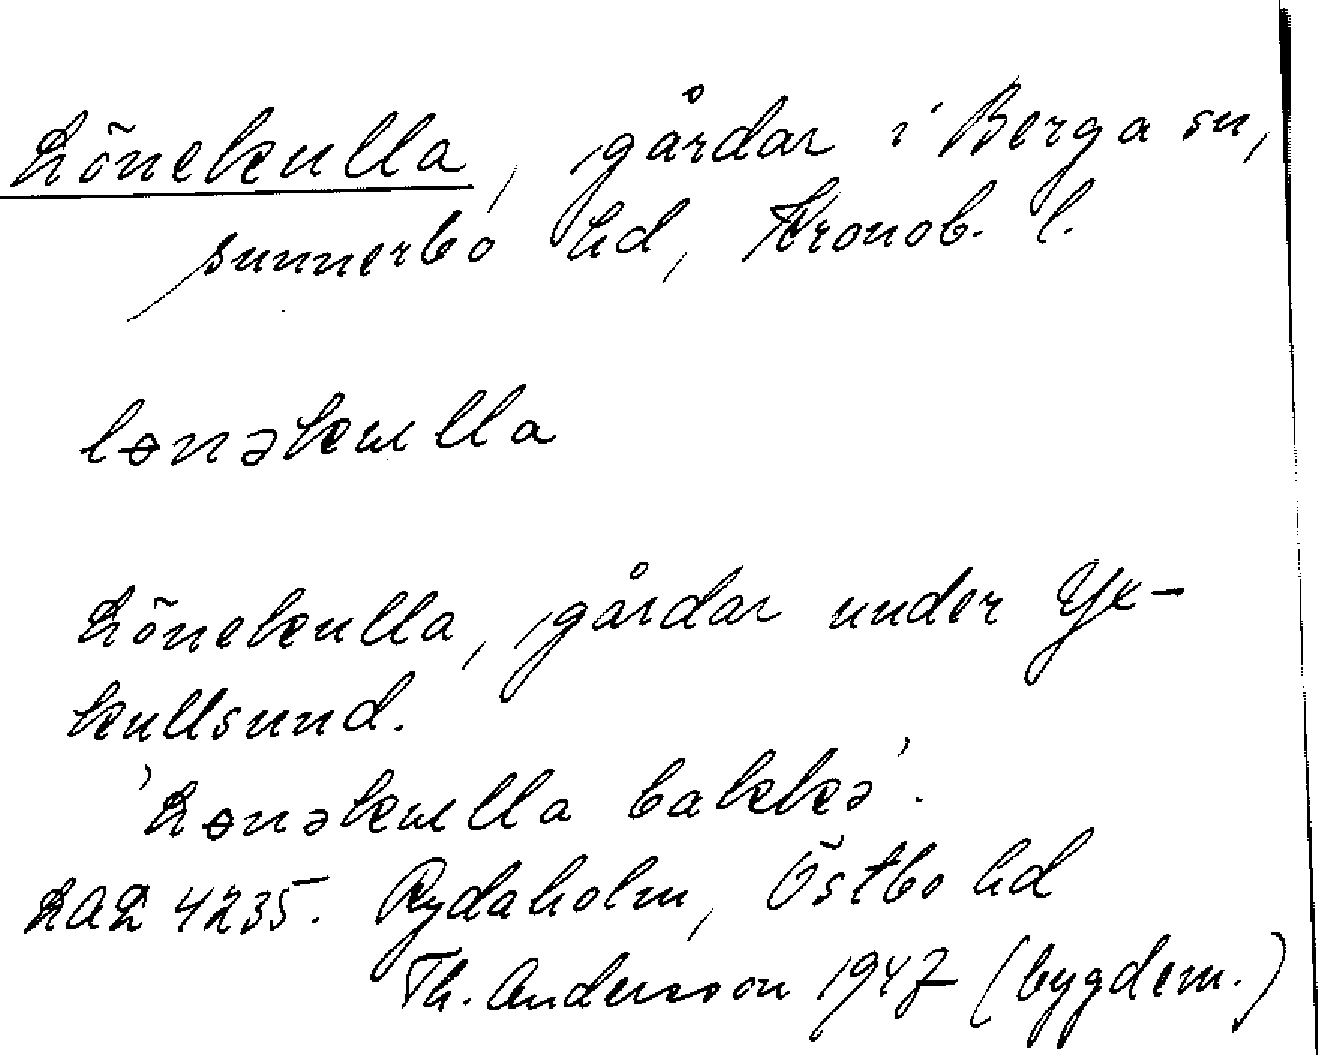 Lönekulla, gårdar i Berga sn,
Sunnerbo hd, Kronob. l.
lɵnəkɯlla
Lönekulla, gårdar under Ye-
kullsund.
'Lɵnəkɯlla bakkə'.
LAL 4235. Rydaholm, Östbo hd
Th. Andersson 1947 (bygdem.)